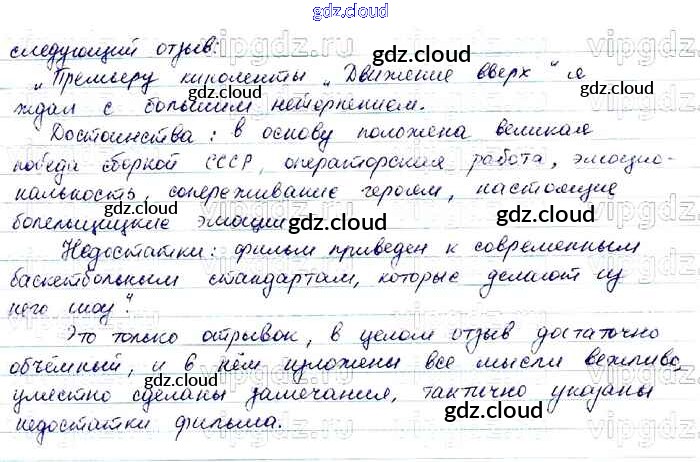 gdz.cloud
следующий отзыв:
gdz.cloud gdz.cloud
„Премьеру киноленты „Движение вверх“ я
ждал с большим нетерпением.
gdz.cloud gdz.cloud
Достоинства: в основу положена великая
победа сборной СССР, операторская работа, эмоцио-
нальность, сопереживание героям, настоящие
болельщицкие эмоции
gdz.cloud gdz.cloud gdz.cloud
Недостатки: фильм приведен к современным
баскетбольным стандартам, которые делают из
него шоу“.
gdz.cloud gdz.cloud
Это только отрывок, в целом отзыв достаточно
объёмный, и в нём изложены все мысли вежливо,
gdz.cloud
уместно сделаны замечания, тактично указаны
недостатки фильма.
gdz.cloud